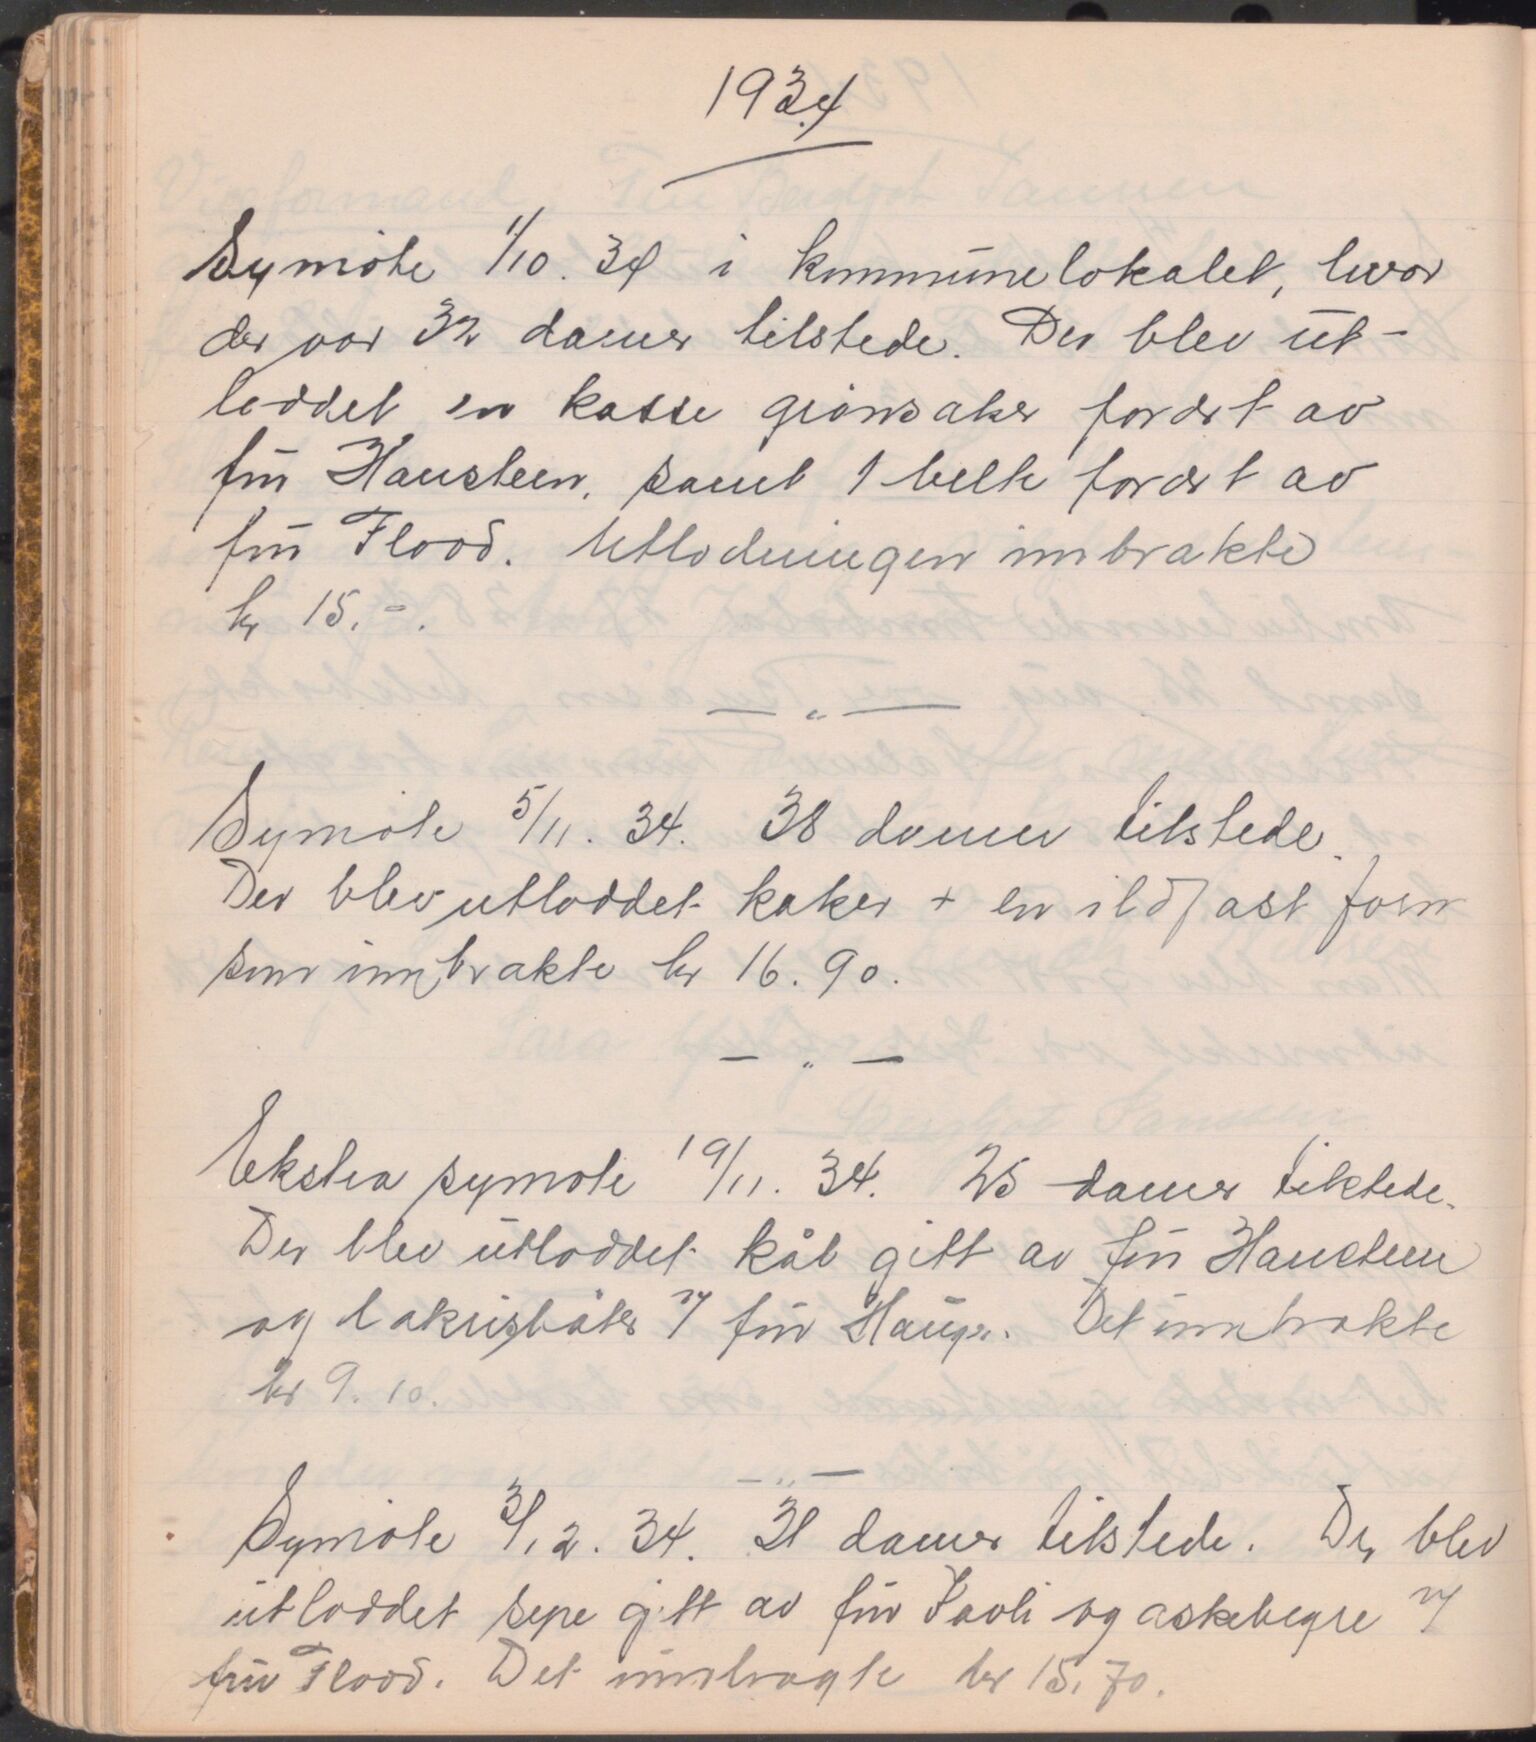 1934
Symöte 1/10. 34 i kommunelokalet, hvor
der var 32 damer tilstede. Der blev ut-
loddet en kasse grönsaker forært av
frü Hansteen, samt 1 belte foræret av
frü Flood. Utlodningen innbrakte
kr 15.-.
— „ —
Symöte 5/11. 34. 38 damer tilstede.
Der blev utloddet kaker + en ildfast form
som innbrakte kr 16.90.
— „ —
Ekstra symöte 19/11. 34. 25 damer tilstede.
Der blev utloddet kål gitt av frü Hansteen
og lakrisbåter frü Det innbrakte
kr 9.10.
— „ —
Symöte 3/12. 34. 31 damer tilstede. Der blev
utloddet sepe gitt av frü og askebegre
frü Flood. Det innbragte kr 15.70.